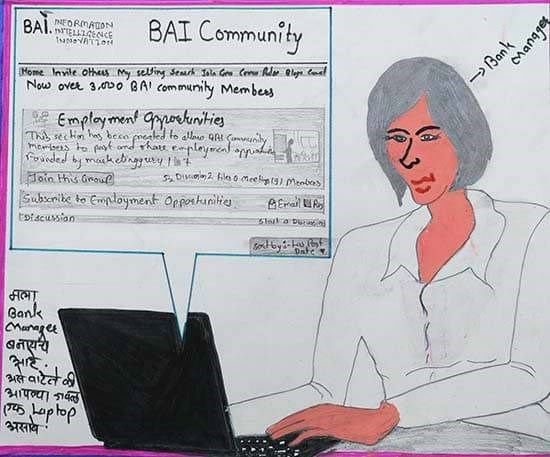 BAI. INFORMATION
INTELLIGENCE
INNOVATION
BAI Community
Home Invite Others My setting Search Join Blogs
Now over 3,000 BAI community Members
Employment Opportunities
This section has been created to allow BAI Community
members to post and share employment
Founded by
Join this Group
52 Discussion 2 files 0 Meeting 191 Members
Subscribe to Employment Opportunities
Email
Discussion
Start a Discussion
Sort by:- Last Post
Date
→ Bank
Manager
मला
Bank
Manager
बनायच
आहे.
अस वाटते की
आपल्या जवळ
एक Laptop
असावे.